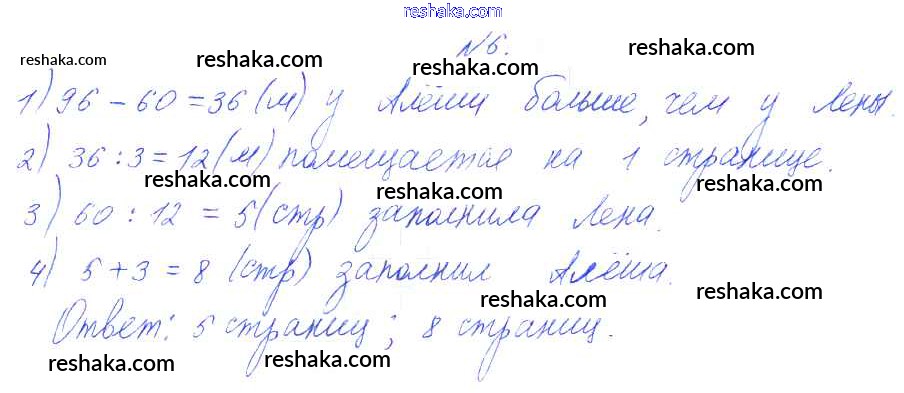 reshaka.com
№6.
reshaka.com reshaka.com reshaka.com reshaka.com
1) 96 - 60 = 36 (м) у Алёши больше, чем у Лены.
reshaka.com reshaka.com
2) 36 : 3 = 12 (м) помещается на 1 странице.
reshaka.com reshaka.com reshaka.com
3) 60 : 12 = 5 (стр) заполнила Лена.
reshaka.com reshaka.com
4) 5 + 3 = 8 (стр) заполнил Алёша.
reshaka.com reshaka.com
Ответ: 5 страниц; 8 страниц.
reshaka.com reshaka.com